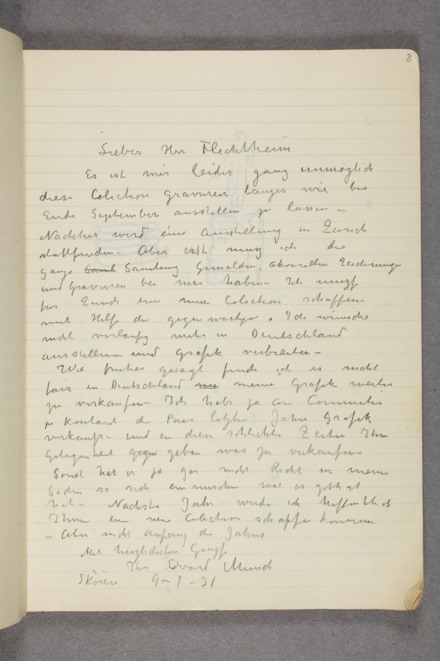 8
Lieber Herr Flechtheim
Es ist mir leider ganz unmöglich
diese Colection gravuren länger wie bis
Ende September ausstellen zu lassen –
Nachher wird eine Ausstellung in Zürich
stattfinden. Aber erst muss ich die
ganze Samlung Gemälden, akvareller Zeichnungen
und Gravuren bei mir haben. Ich muss
für Zürich eine neue Colection schaffen
mit Hilfe der gegenwärtigen. Ich wünsche
nicht vorläufig mehr in Deutschland
ausstellen und Grafik verbreiten –
Wie früher gesagt finde ich es nicht
fair in Deutschland meine Grafik weiter
zu verkaufen. Ich habe ja an Commeter
in die Paar letzten Jahre Grafik
verkauft und in diese schlechte Zeiten Ihm
Gelegenheit geben was zu verkaufen
Sonst hat er ja gar nicht Recht in meine
so sich ein wie er gethan
hat. Nächste Jahr werde ich hoffentlich
Ihnen eine neue Colection schaffen können
– Aber nicht Anfang des Jahres
Mit herzlichsten Gruss
Ihr Edvard Munch
Skøien 31